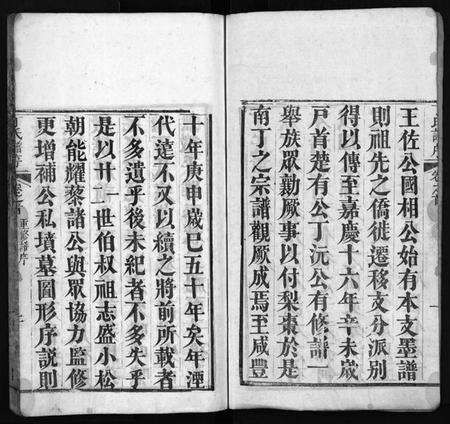 王佐公國相公始有本支墨譜
則祖先之僑徙遷移支分派別
得以傳至嘉慶十六年辛未歲
戸首楚有公丁沅公有修譜一
舉族眾勷厥事以付梨棗於是
南丁之宗譜觀厥成焉至咸豐
十年庚申歲已五十年矣年湮
代遠不又以續之將前所載者
不多遺乎後未紀者不多失乎
是以廿一世伯叔祖志盛小松
朝能耀藜諸公與眾協力監修
更增補公私墳墓圖形序說則
氏譜序 卷之首 重修譜序